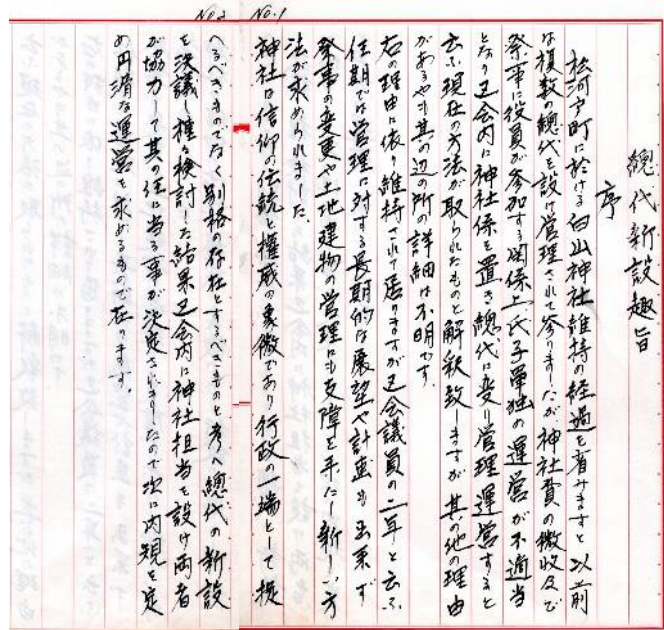 No.1
No.2
總代新設趣旨
序
松河戸町に於ける白山神社維持の経過を省みますと以前
は複数の總代を設け管理されて参りましたが神社費の徴収及び
祭事に役員が参加する関係上、氏子単独の運営が不適当
となり区会内に神社係を置き總代に変り管理運営すると
云ふ現在の方法が取られたものと解釈致しますが其の他の理由
があるやも其の辺の所の詳細は不明です。
右の理由に依り維持されて居りますが区会議員の二年と云ふ
任期では管理に対する長期的な展望や計画も出来ず
祭事の変更や土地建物の管理にも支障を来たし新しい方
法が求められました。
神社は信仰の伝統と権威の象徴であり行政の一端として捉
へるべきものでなく別格の存在とするべきものと考へ總代の新設
を決議し種々検討した結果区会内に神社担当を設け両者
が協力して其の任に当る事が決定されましたので次に内規を定
め円滑な運営を求めるもので在ります。